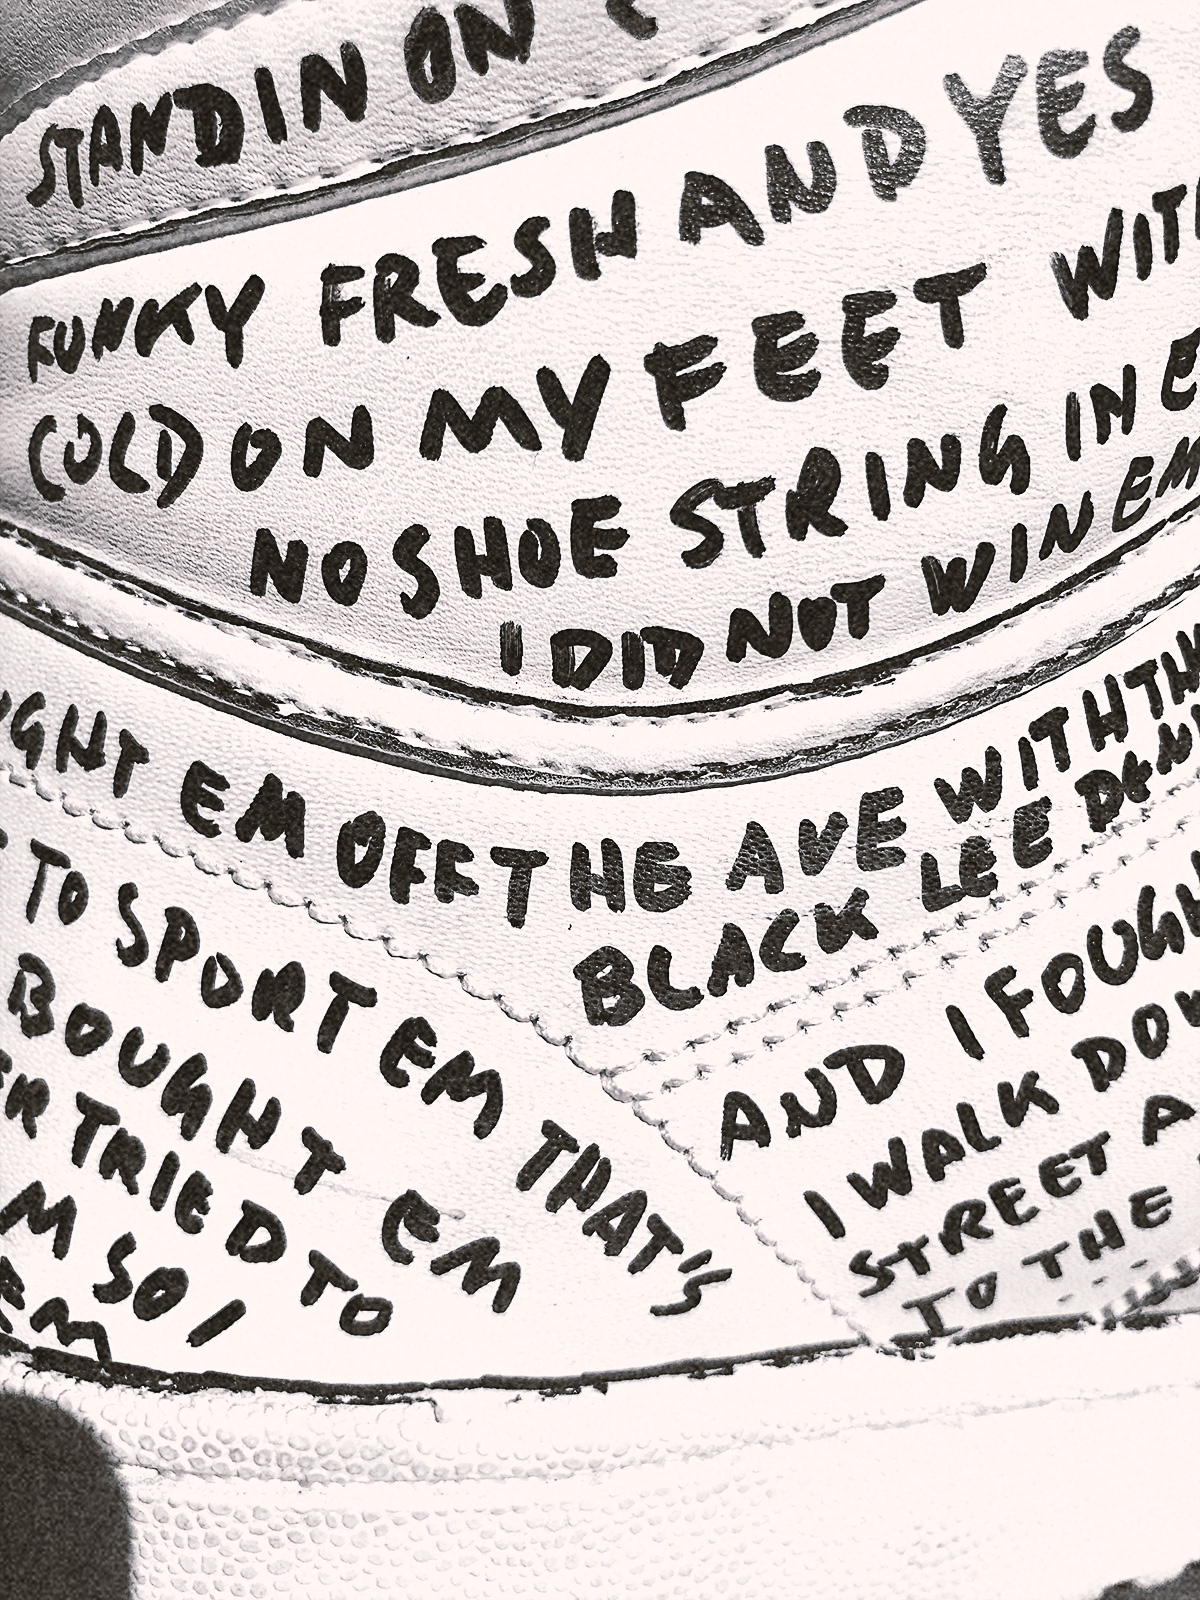 STANDIN ON
FUNKY FRESH AND YES
COLD ON MY FEET WITH
NO SHOE STRING IN E
I DID NOT WIN EM
UGHT EM OFF THE AVE WITH TH
BLACK LEE DEN
TO SPORT EM THAT'S
BOUGHT EM
ER TRIED TO
M SO I
EM
AND I FOUGH
I WALK DOW
STREET A
TO THE